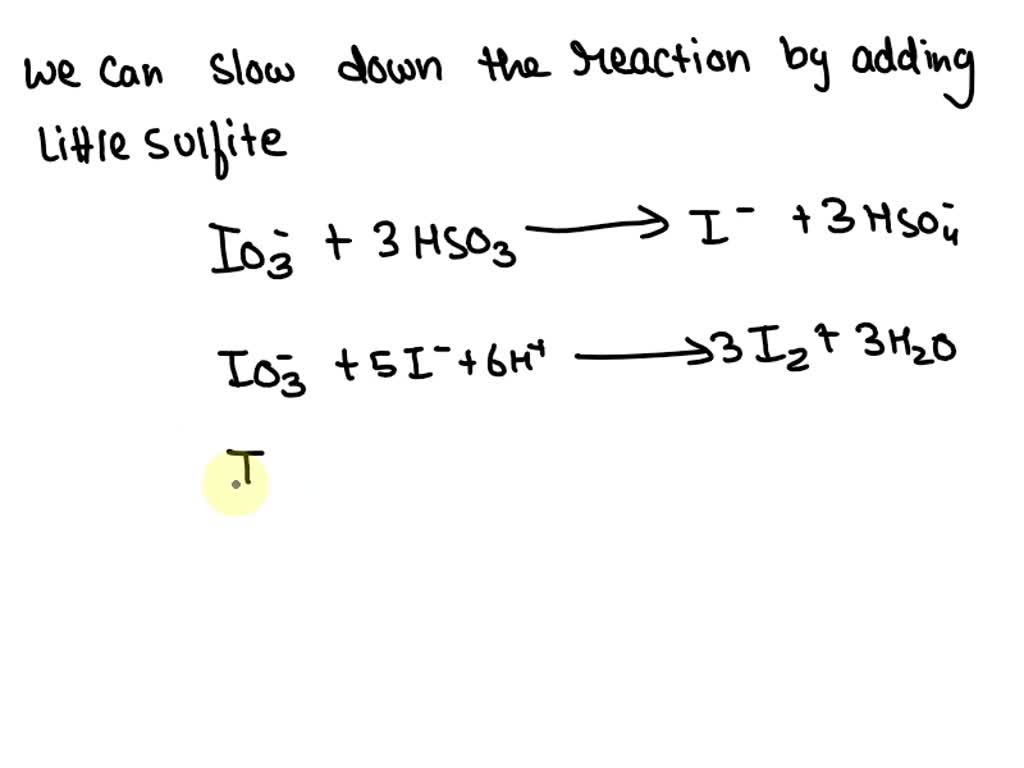 we can slow down the reaction by adding
little sulfite
IO₃⁻ + 3HSO₃ ⟶ I⁻ + 3HSO₄⁻
IO₃⁻ + 5I⁻ + 6H⁺ ⟶ 3I₂ + 3H₂O
I